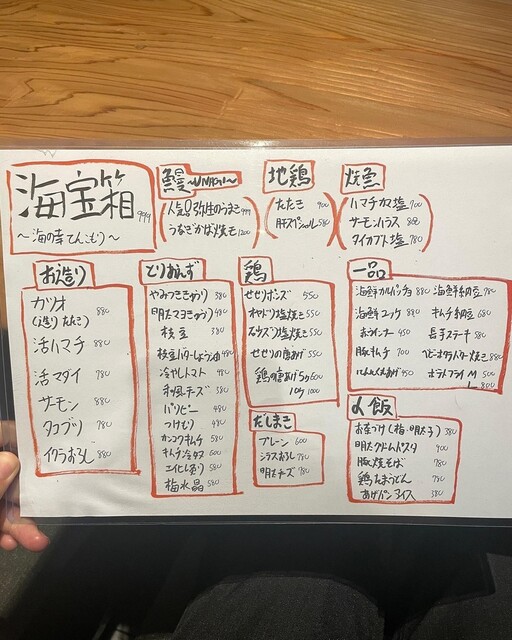 海宝箱 999
〜海の幸てんこもり〜
鰻〜UNAGI〜
人気! 弥生のうまき 999
うなぎかば焼き 1200
地鶏
たたき 900
肝スペシャル 580
焼魚
ハマチカマ塩 700
サーモンハラス 880
タイカブト塩 780
お造り
カツオ
(造り たたき) 880
活ハマチ 880
活マダイ 780
サーモン 880
タコブツ 780
イクラおろし 880
とりあえず
やみつききゅうり 380
明太マヨきゅうり 480
枝豆 380
枝豆バターしょうゆ 480
冷やしトマト 480
和風チーズ 380
パリピー 480
つけもり 480
カンコクキムチ 580
キムチ冷奴 600
エイヒレ炙り 580
梅水晶 580
鶏
せせりポンズ 550
塩焼き 550
塩焼き 550
せせりの唐あげ 550
鶏の唐あげ 5ヶ 600
10ヶ 1000
だしまき
プレーン 600
シラスおろし 780
明太チーズ 780
一品
海鮮カルパッチョ 880
海鮮納豆 780
海鮮ユッケ 880
キムチ納豆 680
450
長芋ステーキ 580
豚キムチ 700
ベビーホタテバター焼き 880
にんにくあげ 450
ポテトフライ M 500
L 800
〆飯
お茶づけ(梅・明太子) 380
明太クリームパスタ 900
豚焼そば 780
鶏たまうどん 780
あげパンアイス 380